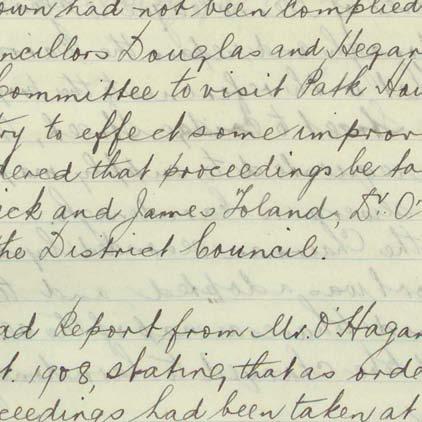 own had not been complied
ncillors Douglas and Hegar
Committee to visit Path Hou
try to effect some improv
dered that proceedings be ta
ick and James Toland, Dr. O'
the District Council.
ad Report from Mr. O'Hagan
t. 1908, stating that as orde
ceedings had been taken at